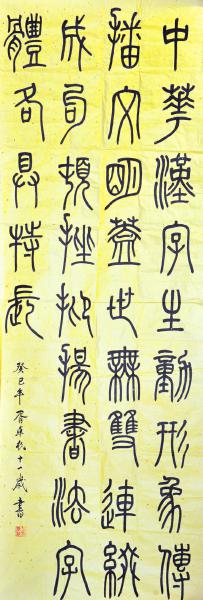 中華漢字生動形象傳
播文明蓋世無雙連綴
成句頓挫抑揚書法字
體各具特長
癸巳年 十一歲書